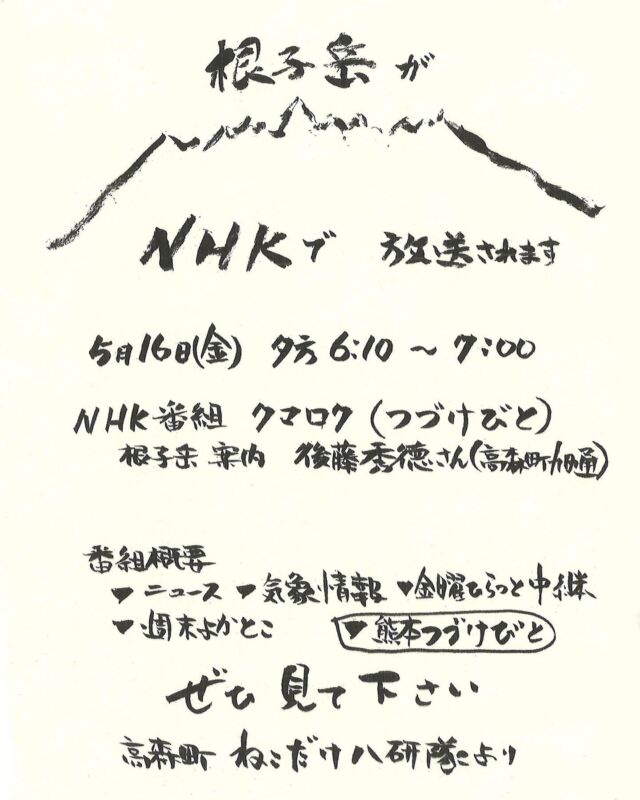 根子岳が
NHKで 放送されます
5月16日(金) 夕方 6:10 ~ 7:00
NHK番組 クマロク (つづけびと)
根子岳 案内 後藤秀徳さん(高森町
番組概要
▼ニュース ▼気象情報 ▼金曜ひらっと中継
▼週末よかとこ ▼熊本つづけびと
ぜひ 見て 下さい
高森町 ねこだけ八研隊より